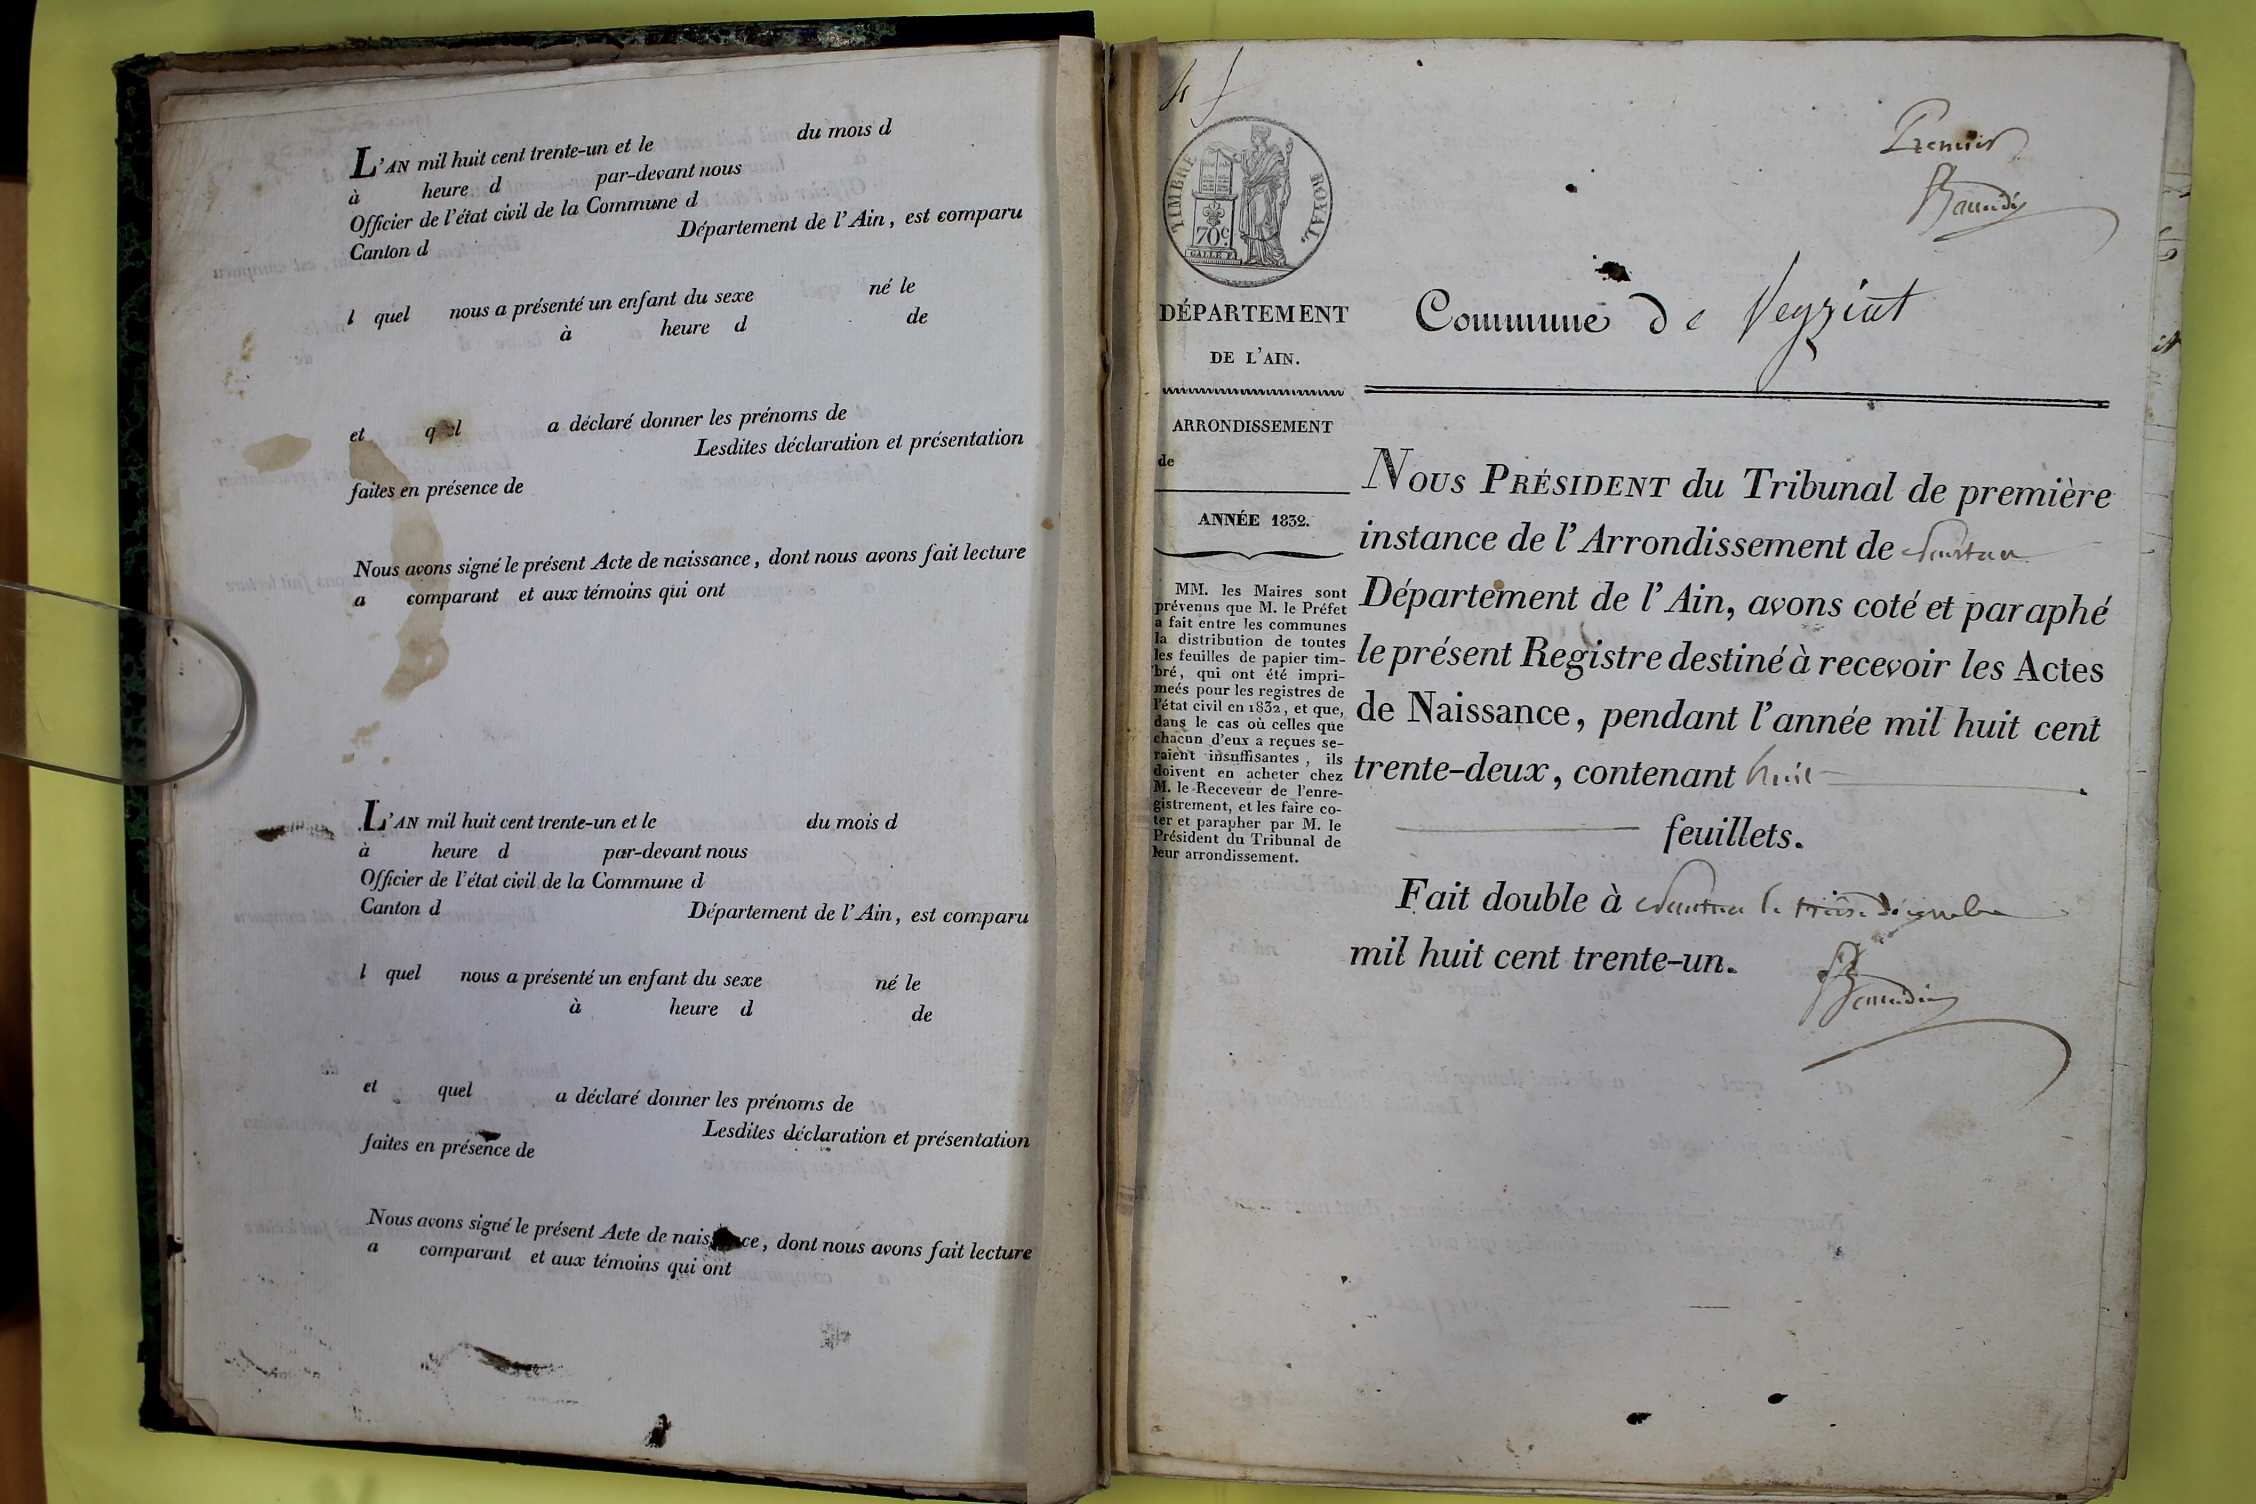 L'AN mil huit cent trente-un et le du mois d
à heure d par-devant nous
Officier de l'état civil de la Commune d
Canton d Département de l'Ain, est comparu
l quel nous a présenté un enfant du sexe né le
à heure d de
et quel a déclaré donner les prénoms de
Lesdites déclaration et présentation
faites en présence de
Nous avons signé le présent Acte de naissance, dont nous avons fait lecture
a comparant et aux témoins qui ont
L'AN mil huit cent trente-un et le du mois d
à heure d par-devant nous
Officier de l'état civil de la Commune d
Canton d Département de l'Ain, est comparu
l quel nous a présenté un enfant du sexe né le
à heure d de
et quel a déclaré donner les prénoms de
Lesdites déclaration et présentation
faites en présence de
Nous avons signé le présent Acte de naissance, dont nous avons fait lecture
a comparant et aux témoins qui ont
Premier
TIMBRE ROYAL.
70c
DÉPARTEMENT
DE L'AIN.
ARRONDISSEMENT
de
ANNÉE 1832.
MM. les Maires sont
prévenus que M. le Préfet
a fait entre les communes
la distribution de toutes
les feuilles de papier tim-
bré, qui ont été impri-
meés pour les registres de
l'état civil en 1832, et que,
dans le cas où celles que
chacun d'eux a reçues se-
raient insuffisantes, ils
doivent en acheter chez
M. le Receveur de l'enre-
gistrement, et les faire co-
ter et parapher par M. le
Président du Tribunal de
leur arrondissement.
Commune de Veyziat
NOUS PRÉSIDENT du Tribunal de première
instance de l'Arrondissement de Nantua
Département de l'Ain, avons coté et paraphé
le présent Registre destiné à recevoir les Actes
de Naissance, pendant l'année mil huit cent
trente-deux, contenant huit
feuillets.
Fait double à Nantua le treize décembre
mil huit cent trente-un.